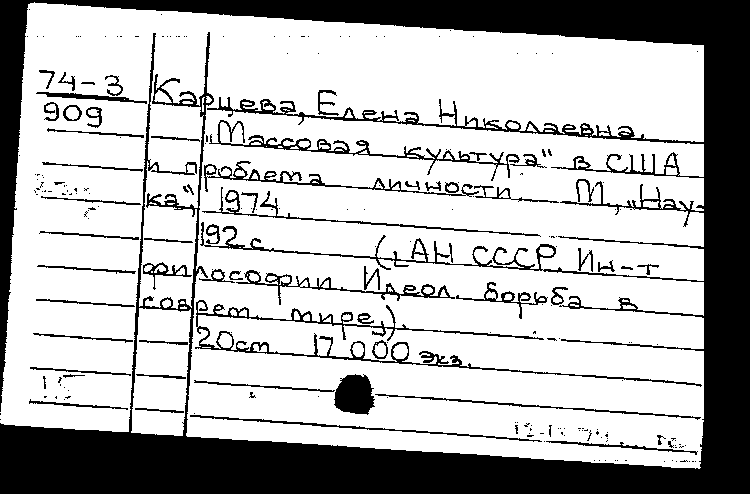 74-3
909
Карцева, Елена Николаевна.
„Массовая культура" в США
и проблема личности. М., „Нау-
ка", 1974.
192 с. ([АН СССР. Ин-т
философии. Идеол. борьба в
соврем. мире]).
20см 17 000 экз.